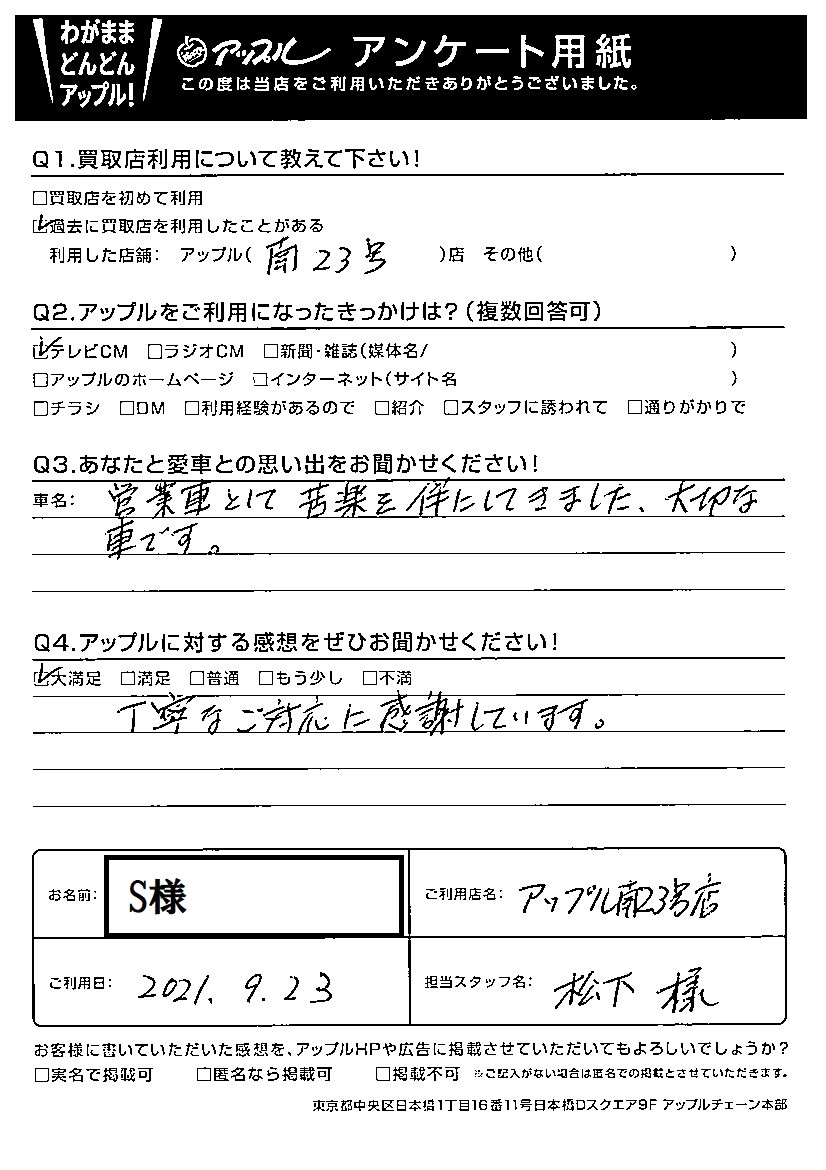 わがまま
どんどん
アップル!
アップル アンケート用紙
この度は当店をご利用いただきありがとうございました。
Q1.買取店利用について教えて下さい!
□買取店を初めて利用
☑過去に買取店を利用したことがある
利用した店舗: アップル( 南23号 )店 その他( )
Q2.アップルをご利用になったきっかけは?(複数回答可)
☑テレビCM □ラジオCM □新聞・雑誌(媒体名/ )
□アップルのホームページ □インターネット(サイト名 )
□チラシ □DM □利用経験があるので □紹介 □スタッフに誘われて □通りがかりで
Q3.あなたと愛車との思い出をお聞かせください!
車名: 営業車として苦楽を伴にしてきました、大切な
車です。
Q4.アップルに対する感想をぜひお聞かせください!
☑大満足 □満足 □普通 □もう少し □不満
丁寧なご対応に感謝しています。
お名前: S様 ご利用店名: アップル南23号店
ご利用日: 2021. 9. 23 担当スタッフ名: 松下 様
お客様に書いていただいた感想を、アップルHPや広告に掲載させていただいてもよろしいでしょうか?
□実名で掲載可 □匿名なら掲載可 □掲載不可 ※ご記入がない場合は匿名での掲載とさせていただきます。
東京都中央区日本橋1丁目16番11号日本橋Dスクエア9F アップルチェーン本部